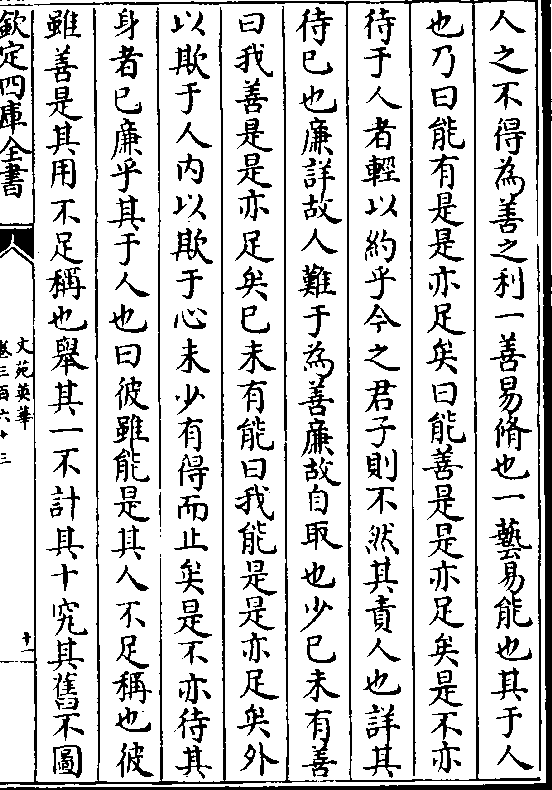 人之不得為善之利一善易脩也一藝易能也其于人
也乃曰能有是是亦足矣曰能善是是亦足矣是不亦
待于人者輕以約乎今之君子則不然其責人也詳其
待已也廉詳故人難于為善廉故自取也少已未有善
曰我善是是亦足矣已未有能曰我能是是亦足矣外
以欺于人内以欺于心未少有得而止矣是不亦待其
身者已廉乎其于人也曰彼雖能是其人不足稱也彼
雖善是其用不足稱也舉其一不計其十究其舊不圖
欽定四庫全書
文苑英華
卷三百六十三
十一